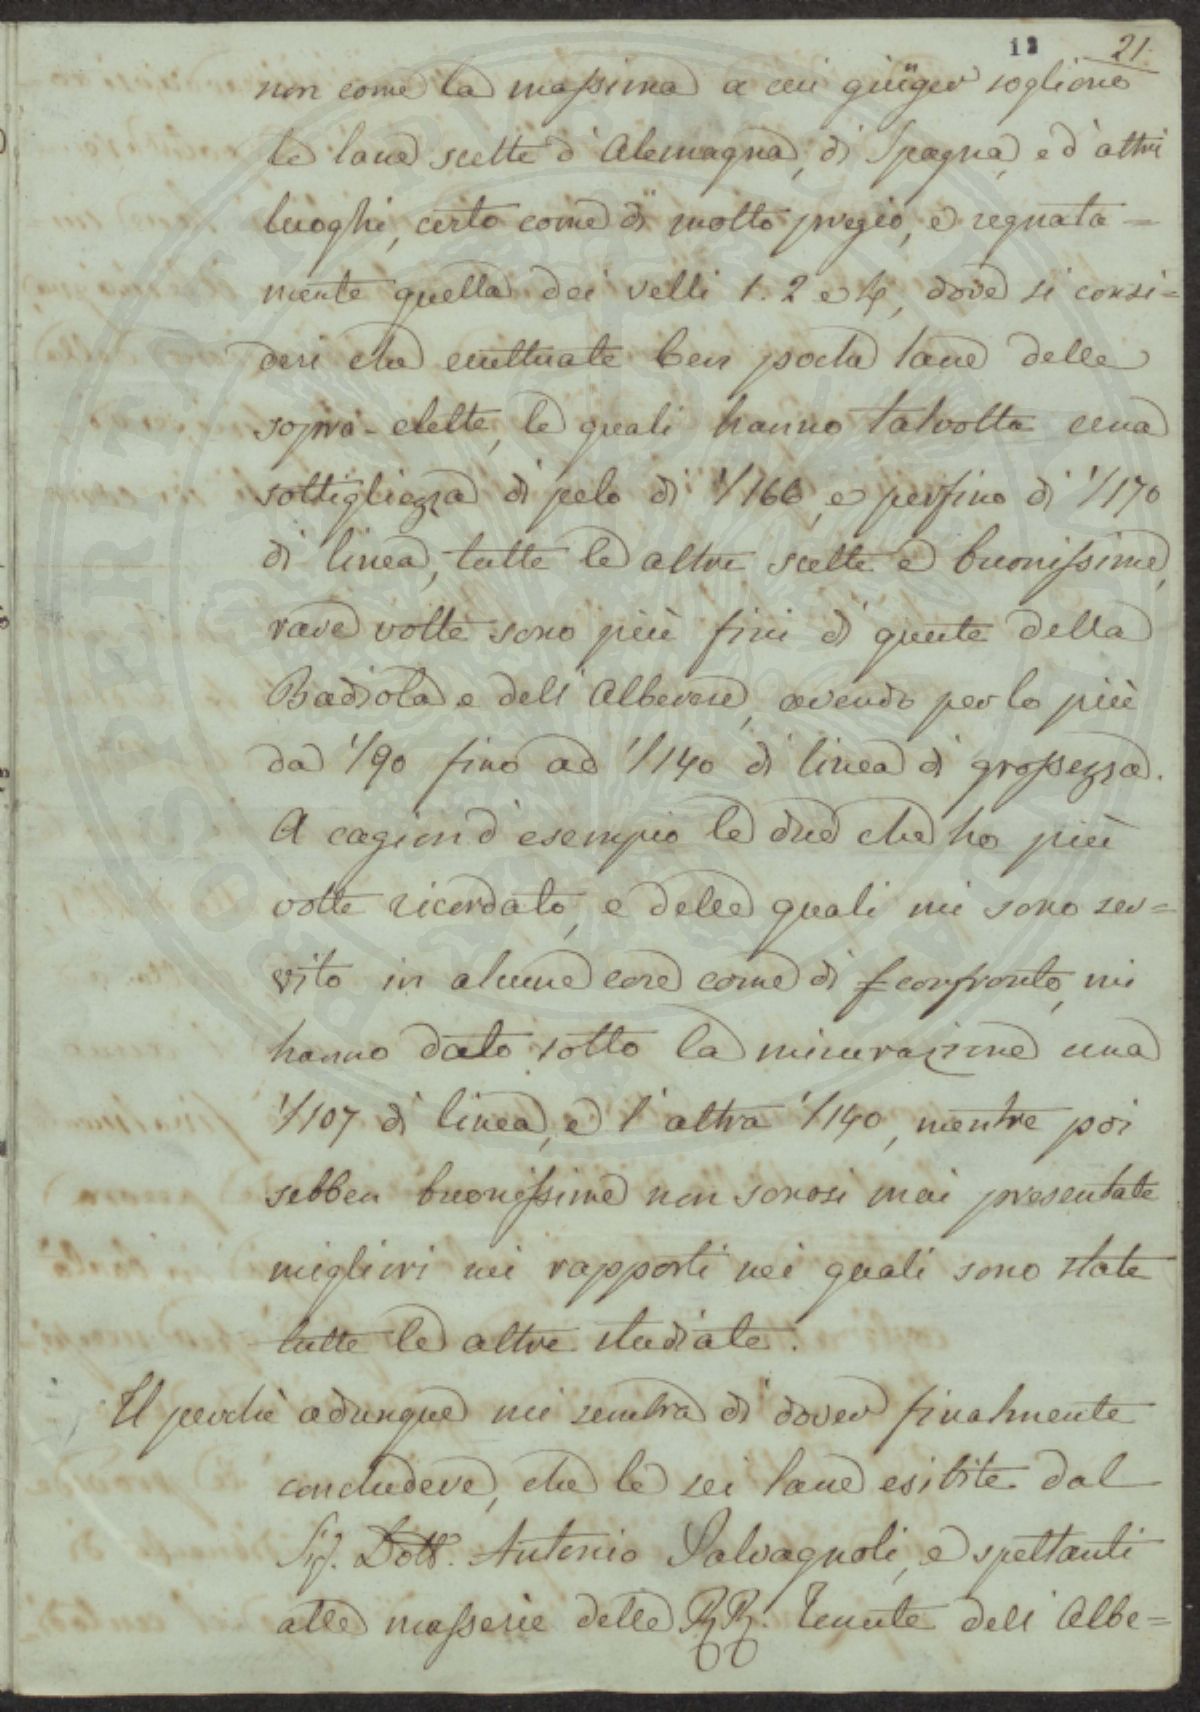 12 21.
non come la massima a cui giugner sogliono
le lane scelte d'Alemagna, di Spagna, e d'altri
luoghi, certo come di molto pregio, e segnata=
mente quella dei velli 1. 2 e 4, dove si consi=
deri che eccettuate ben poche lane delle
sopra-elette, le quali hanno talvolta una
sottigliezza di pelo di 1/166, e perfino di 1/170
di linea, tutte le altre scelte e buonissime,
rare volte sono più fini di queste della
Badiola e dell'Alberese, avendo per lo più
da 1/90 fino ad 1/140 di linea di grossezza.
A cagion d'esempio le due che ho più
volte ricordato, e delle quali mi sono ser=
vito in alcune cose come di confronto, mi
hanno dato sotto la misurazione una
1/107 di linea, e l'altra 1/140, mentre poi
sebben buonissime non sonosi mai presentate
migliori nei rapporti nei quali sono state
tutte le altre studiate.
Il perchè adunque mi sembra di dover finalmente
concludere, che le sei lane esibite dal
Sig. Dott. Antonio Salvagnoli, e spettanti
alle masserie delle RR. Tenute dell'Albe=
PROSPERITATI PUBLICAE AUGENDAE